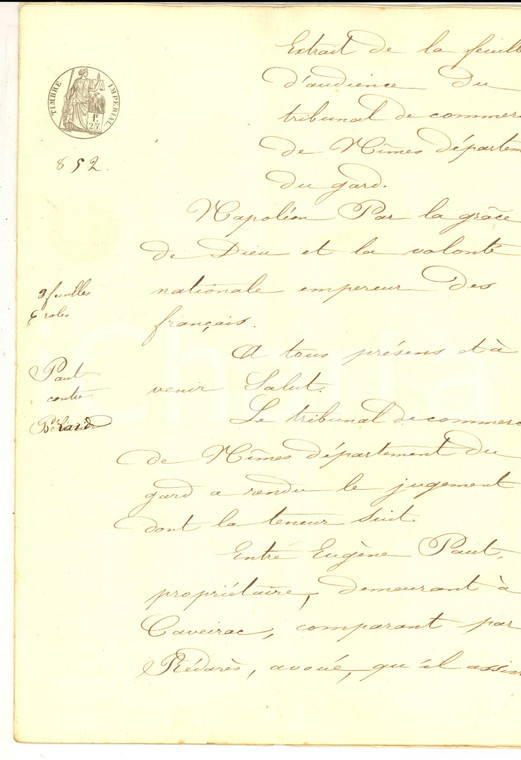 Extrait de la feuille
d'audience du
tribunal de commer
de Nîmes départem
du gard.
TIMBRE IMPERIAL
1F
25
852.
Napoléon Par la grâce
de Dieu et la volonté
nationale empereur des
français.
3 feuilles
6 roles
A tous présens et à
venir Salut.
Paut
contre
Le tribunal de commerc
de Nîmes département du
gard a rendu le jugement
dont la teneur suit.
Entre Eugène Paut,
propriétaire, demeurant à
Caveirac, comparant par
Rédarès, avoué, qu'il assis